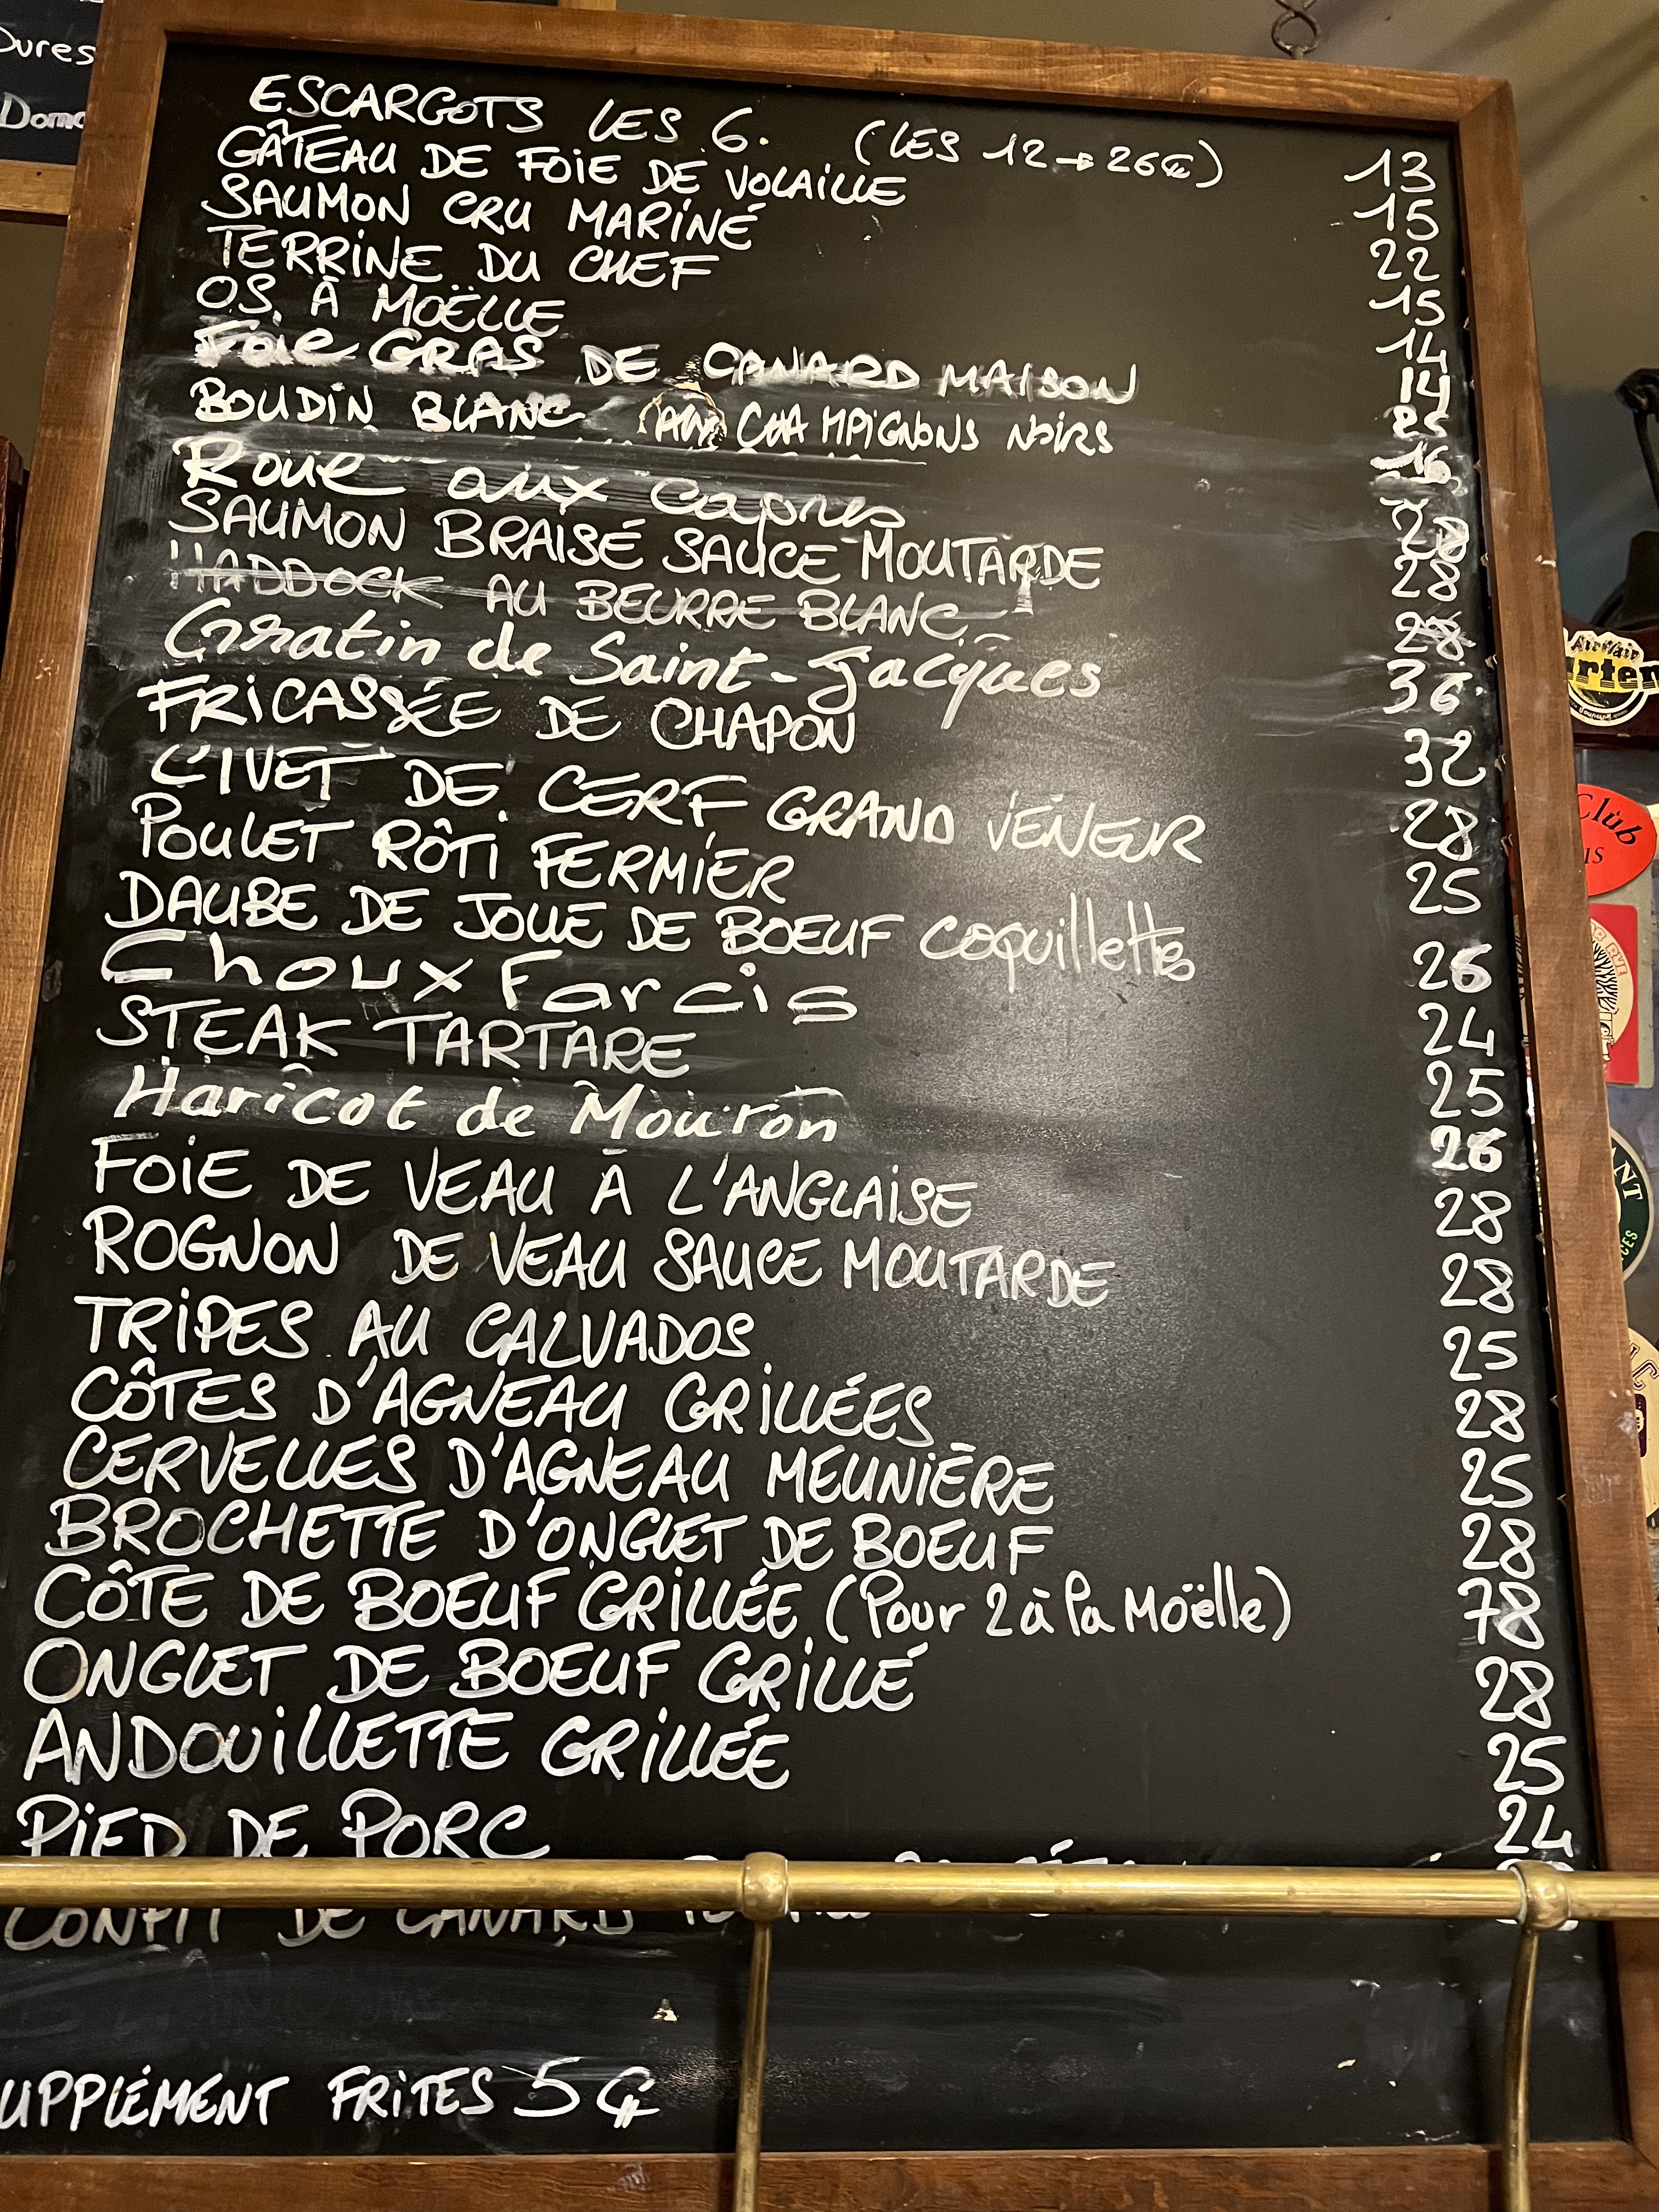 Dures
ESCARGOTS LES 6. (LES 12 → 26€) 13
GÂTEAU DE FOIE DE VOLAILLE 15
SAUMON CRU MARINÉ 22
TERRINE DU CHEF 15
OS À MOËLLE 14
Foie GRAS DE CANARD MAISON
BOUDIN BLANC CHAMPIGNONS NOIRS 16
aux Capres 28
SAUMON BRAISÉ SAUCE MOUTARDE 28
HADDOCK AU BEURRE BLANC 28
Gratin de Saint-Jacques 36
FRICASSÉE DE CHAPON 32
CIVET DE CERF GRAND VENEUR 28
POULET RÔTI FERMIER 25
DAUBE DE JOUE DE BOEUF coquillettes 26
Choux Farcis 24
STEAK TARTARE 25
Haricot de Mouton 26
FOIE DE VEAU À L'ANGLAISE 28
ROGNON DE VEAU SAUCE MOUTARDE 28
TRIPES AU CALVADOS 25
CÔTES D'AGNEAU GRILLÉES 28
CERVELLES D'AGNEAU MEUNIÈRE 25
BROCHETTE D'ONGLET DE BOEUF 28
CÔTE DE BOEUF GRILLÉE (Pour 2 à la Moëlle) 78
ONGLET DE BOEUF GRILLÉ 28
ANDOUILLETTE GRILLÉE 25
PIED DE PORC 24
CONFIT DE CANARD
UPPLÉMENT FRITES 5 €
AirWair
Club
IS
NT